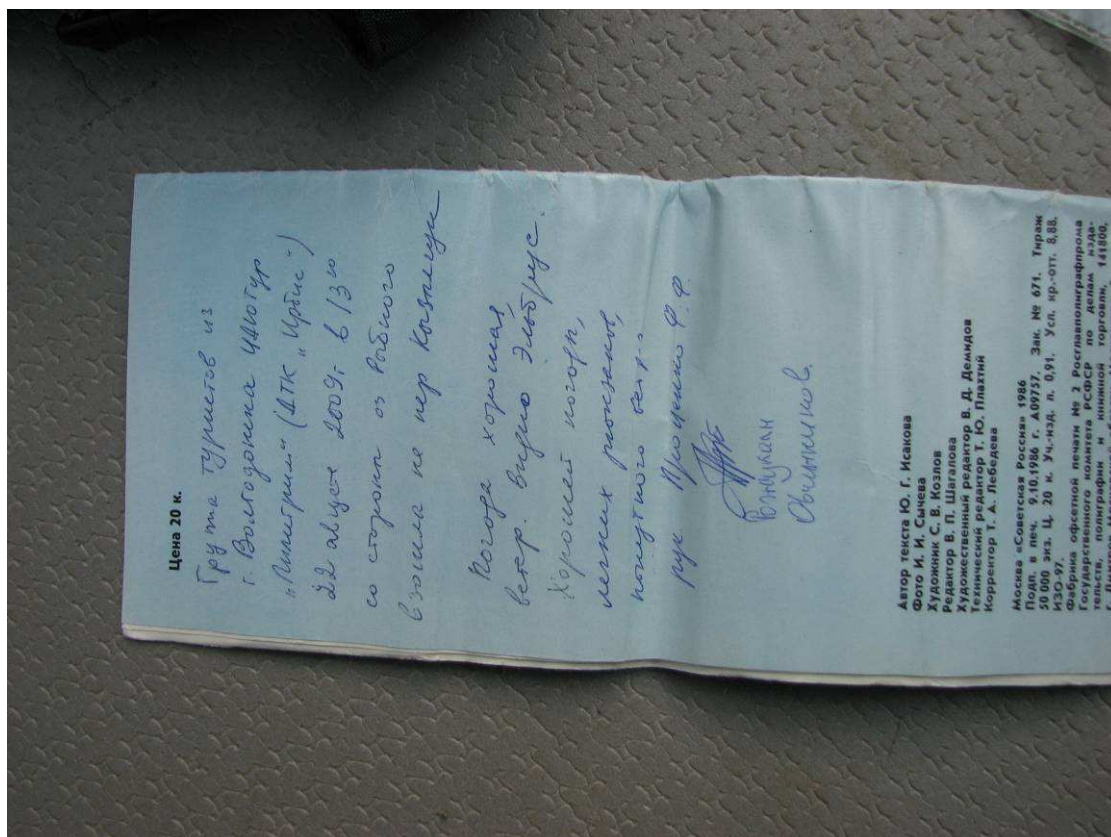 Цена 20 к.
Группа туристов из
г. Волгодонска ЦДЮТур
"Пилигрим" (ДТК "Ирбис")
22 августа 2009г. в 13²⁰
со стороны оз Рыбного
взошла на пер Кызылчук
Погода хорошая
ветер. видно Эльбрус.
Хорошей погоды,
легких рюкзаков,
попутного ветра
рук Проценко Ф.Ф.
Овчинников.
Автор текста Ю. Г. Исакова
Фото И. И. Сычева
Художник С. В. Козлов
Редактор В. П. Шагалова
Художественный редактор В. Д. Демидов
Технический редактор Т. Ю. Плахтий
Корректор Т. А. Лебедева
Москва «Советская Россия» 1986
Подп. в печ. 9.10.1986 г. А09757. Зак. № 671. Тираж
50 000 экз. Ц. 20 к. Уч.-изд. л. 0,91. Усл. кр.-отт. 8,88.
ИЗО-97.
Фабрика офсетной печати № 2 Росглавполиграфпрома
Государственного комитета РСФСР по делам изда-
тельств, полиграфии и книжной торговли, 141800,